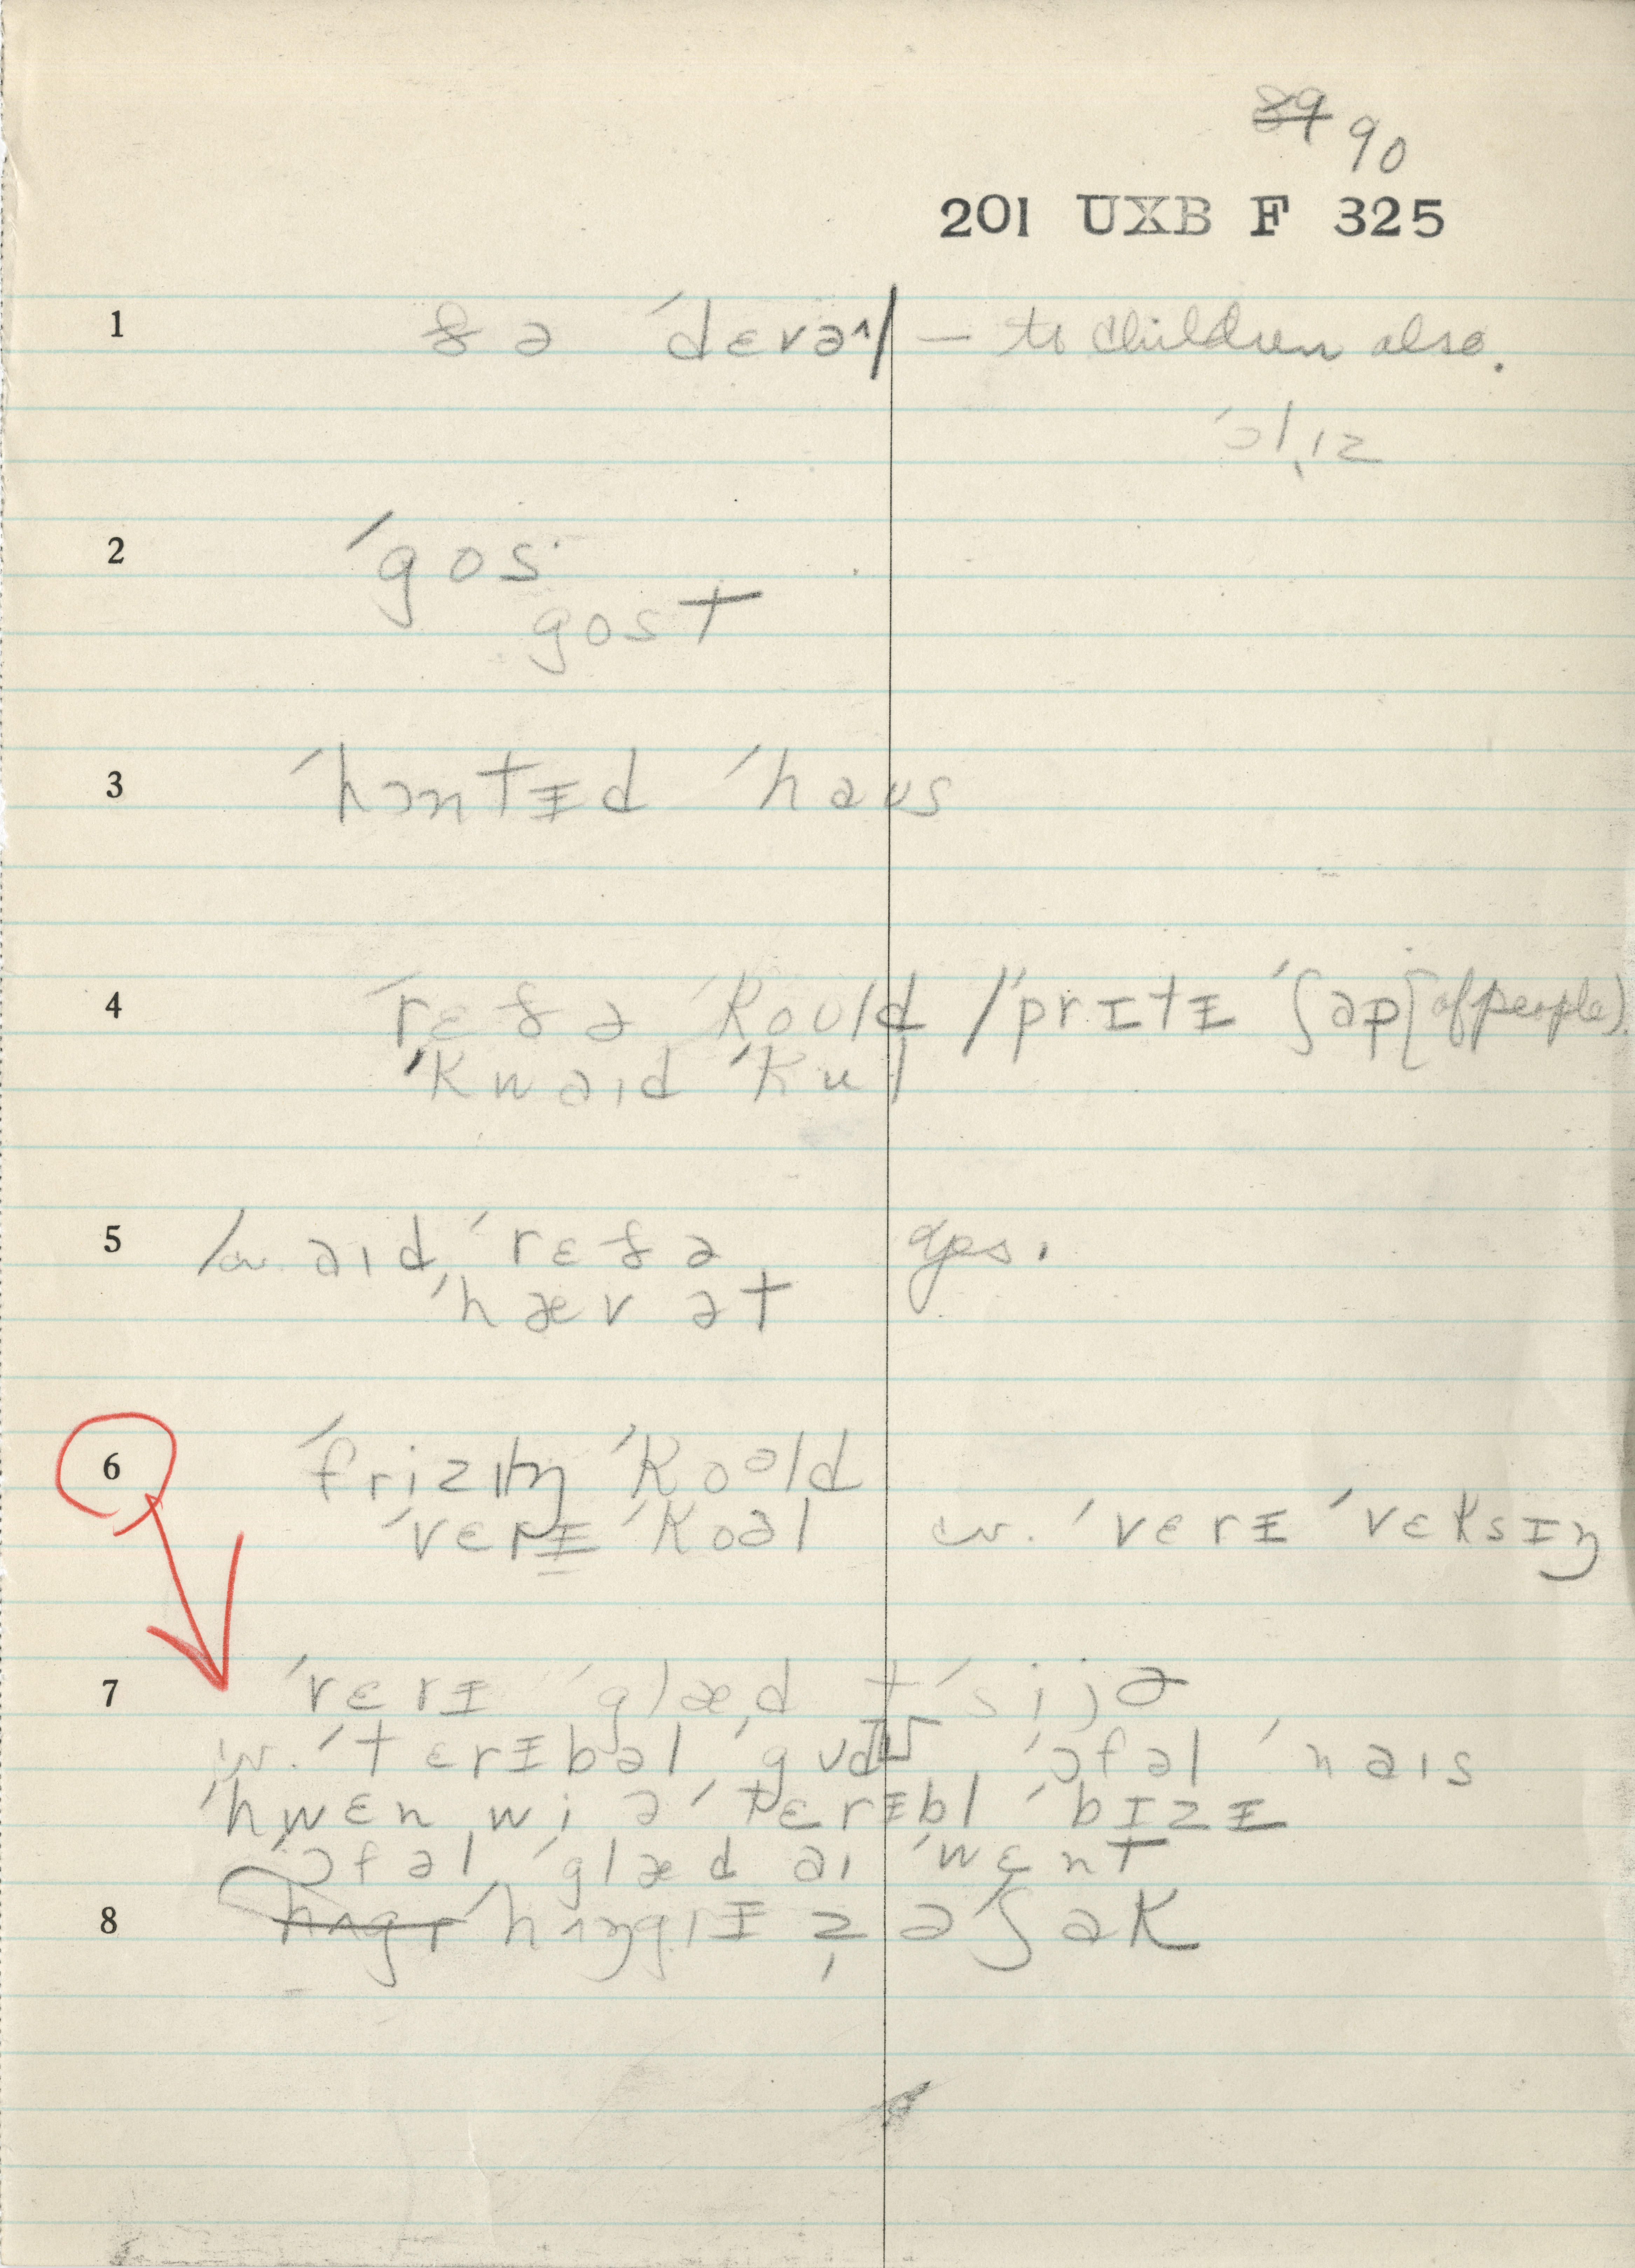 89 90
201 UXB F 325
1 ðə ˈdɛvəl/ — to children also.
2 ˈgos
gost
3 ˈhɔntɪd ˈhaus
4 ˈrɛðə ˈkould /ˈprɪtɪ ˈʃap [of people).
ˈkwaɪd ˈkul
5 /cv. aɪd ˈrɛðə aux.
ˈhæv ət
6 ˈfrizɪŋ ˈkoəld
ˈvɛrɪ ˈkoəl cv. ˈvɛrɪ ˈvɛksɪŋ
7 ˈvɛrɪ ˈglæd tˈsijə
cv. ˈtɛrɪbəl ˈgʊd ˈɔfəl ˈnaɪs
ˈhwɛn wi əˈtɛrɪbl ˈbɪzɪ
ˈɔfəl ˈglæd aɪ ˈwɛnt
8 ˈhʌŋgrɪ z əˈʃak